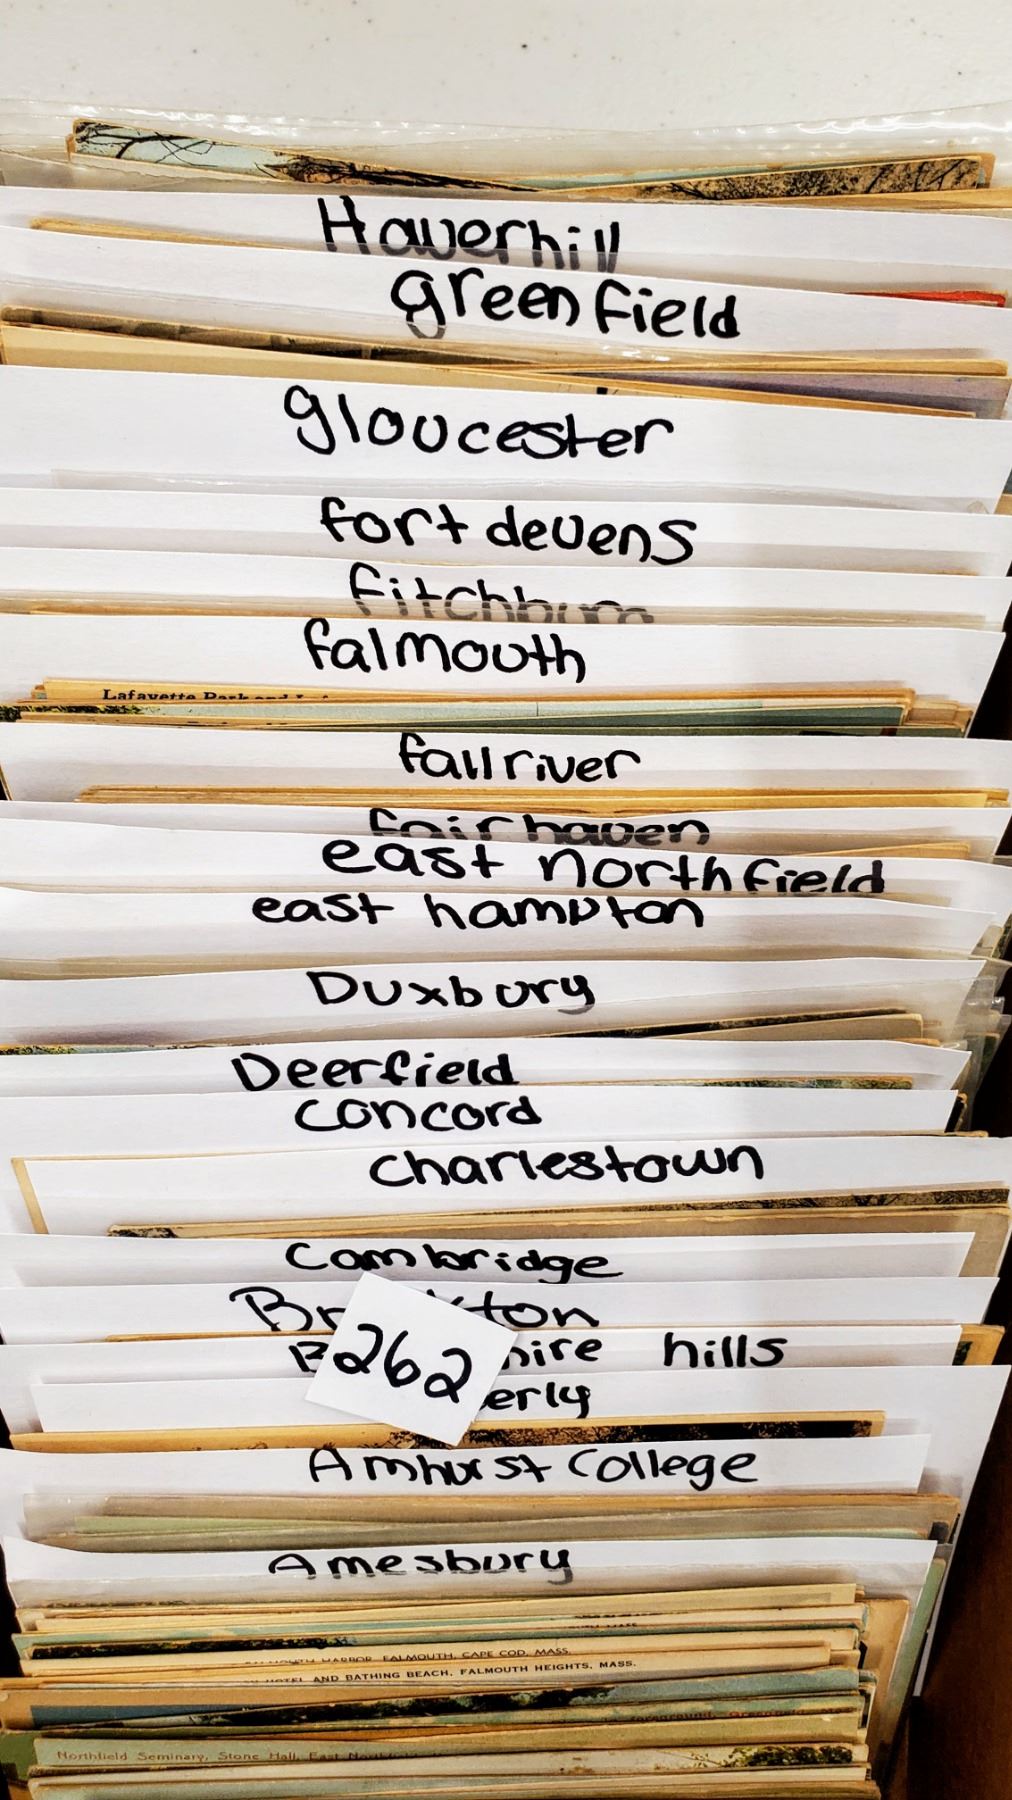 Haverhill
greenfield
gloucester
fort devens
fitchburg
falmouth
Lafayette Park and
fallriver
fairhaven
east northfield
east hampton
Duxbury
Deerfield
concord
charlestown
Cambridge
Br kton
262
B hire hills
erly
Amhurst College
Amesbury
MASS.
FALMOUTH HARBOR, FALMOUTH, CAPE COD, MASS.
HOTEL AND BATHING BEACH, FALMOUTH HEIGHTS, MASS.
foreground,
Northfield Seminary, Stone Hall, East